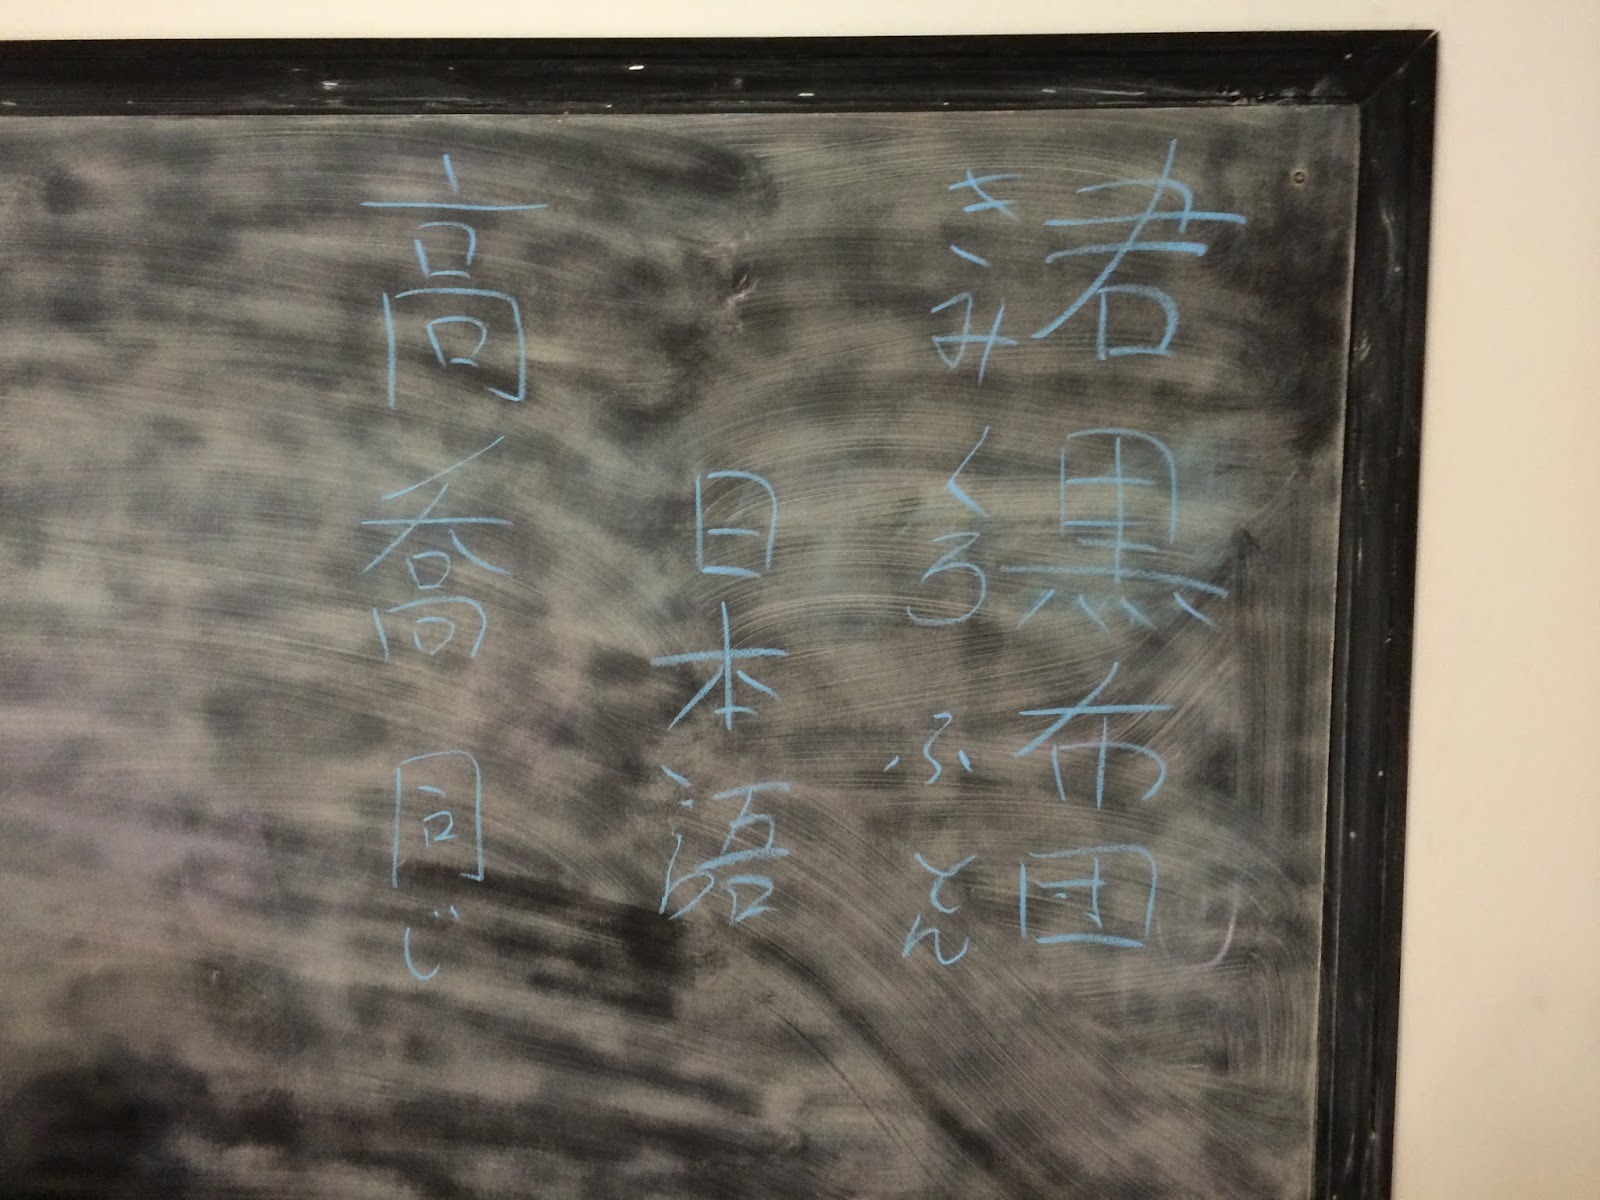 君黒布団
きみくろふとん
日本語
高喬同じ